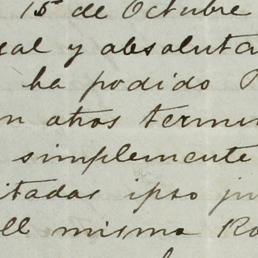 15 de Octubre
eal y absoluta
ha podido
n otros termin
simplemente
itadas ipso ju
ell misma Ro